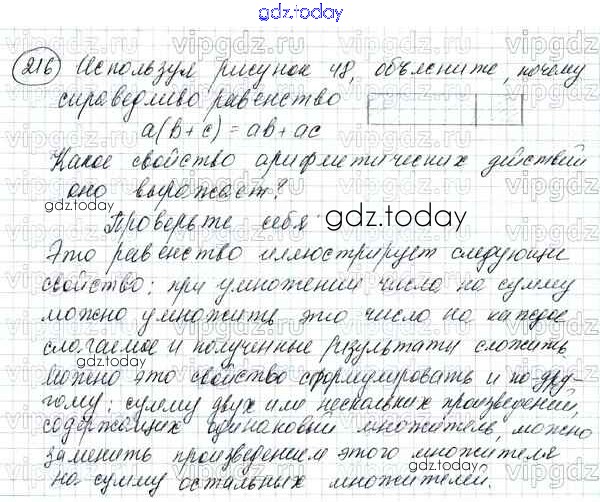 gdz.today
216 Используя рисунок 48, объясните, почему
справедливо равенство
a(b+c) = ab + ac
Какое свойство арифметических действий
оно выражает?
Проверьте себя.
gdz.today gdz.today
Это равенство иллюстрирует следующее
свойство: при умножении числа на сумму
можно умножить это число на каждое
слагаемое и полученные результаты сложить.
gdz.today gdz.today
можно это свойство сформулировать и по-дру-
гому: сумму двух или нескольких произведений,
содержащих одинаковый множитель, можно
заменить произведением этого множителя
на сумму остальных множителей.
gdz.today gdz.today